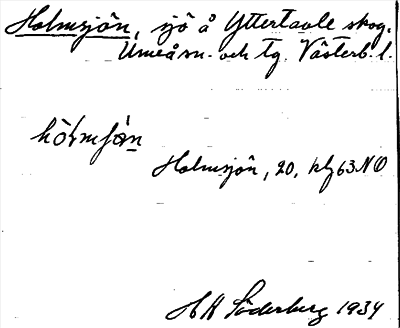 Holmsjön, sjö å Yttertavle skog.
Umeå sn. och tg. Västerb. l.
hòlmʃǻn
Holmsjön, 20, kbl 63 NO
H H Söderberg 1934